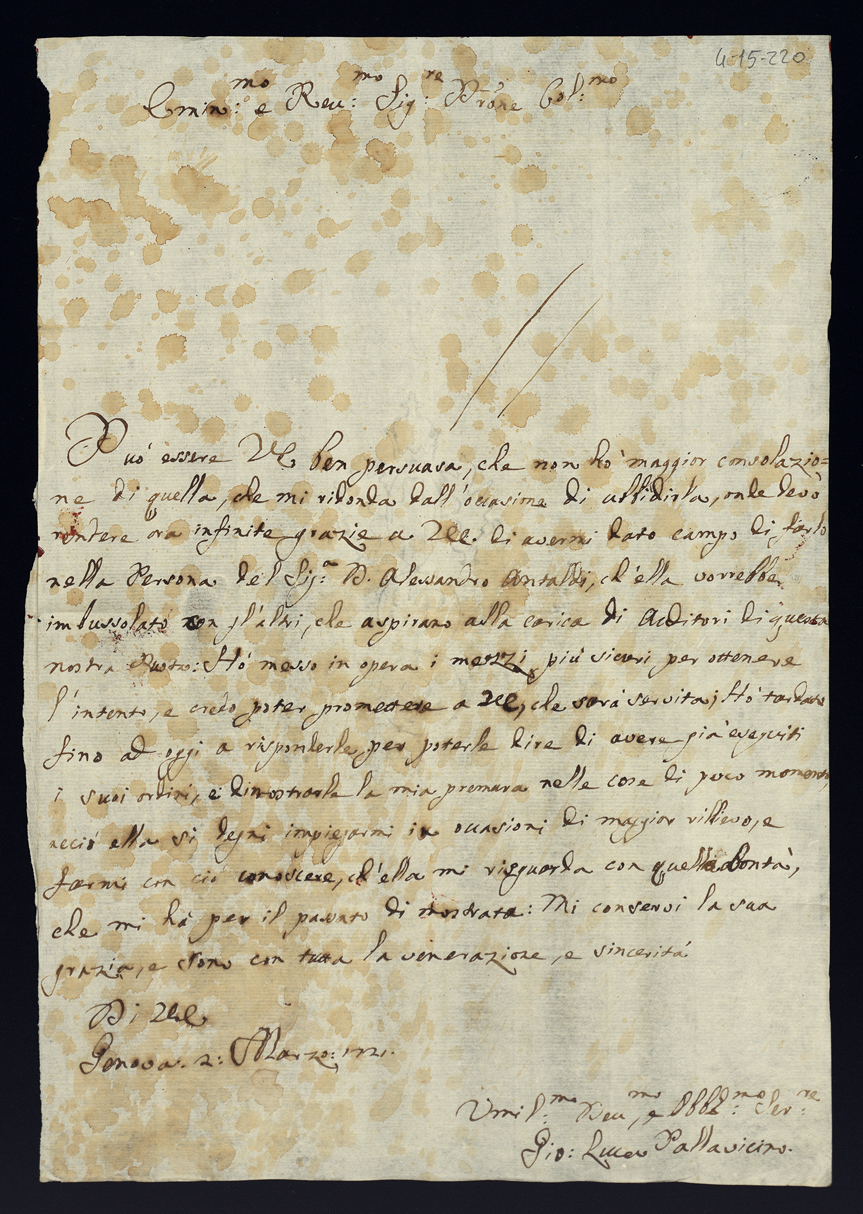 4-15-220
Emin:mo e Reu:mo Sig:re Prōne Col:mo
Può essere VE ben persuasa, che non hò maggior consolazio=
ne di quella, che mi ridonda dall'occasione di ubbidirla, onde devo
rendere ora infinite grazie a VE. di avermi dato campo di farlo
nella Persona del Sig:a D. Alessandro Antaldi, ch'ella vorrebbe
imbussolato con gl'altri, che aspirano alla carica di Auditori di questa
nostra Ruota: Hò messo in opera i mezzi più sicuri per ottenere
l'intento, e credo poter promettere a VE, che sarà servita; Hò tardato
fino ad oggi a risponderle per poterle dire di avere già eseguiti
i suoi ordini, e dimostrarle la mia premura nelle cose di poco momento,
acciò ella si degni impiegarmi in occasioni di maggior rillievo, e
farmi con ciò conoscere, ch'ella mi risguarda con quella bontà,
che mi hà per il passato di mostrata: Mi conservi la sua
grazia, e sono con tutta la venerazione, e sincerità
Di VE
Genova. 2: Marzo: 1721.
Vmil:mo Deu:mo, e Obbl:mo Ser:re
Gio: Luca Pallavicino.